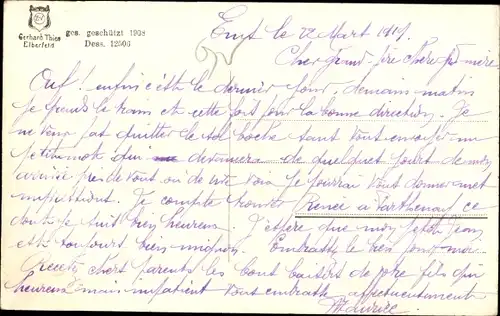 Gerhard Thien
Elberfeld
ges. geschützt 1908
Dess. 12506
le 22 Mart 1919.
Cher grand père Chère gd mère
Ouf! enfin c'est le dernier jour, demain matin
je prends le train et cette fois pour la bonne direction. Je
ne veux pas quitter le sol boche sans vous envoyer un
petit mot qui devancera de quelques jours de mon
arrivée près de vous où de vive voix je pourrai vous donner mes
impressions. Je compte trouver Renée à Parthenay ce
dont je suis bien heureux. J'espère que mon petit Jean
est toujours bien mignon. Embrasse le bien pour moi.
Recevez chers parents les bons baisers de votre fils qui
heureux mais impatient vous embrasse affectueusement
Maurice